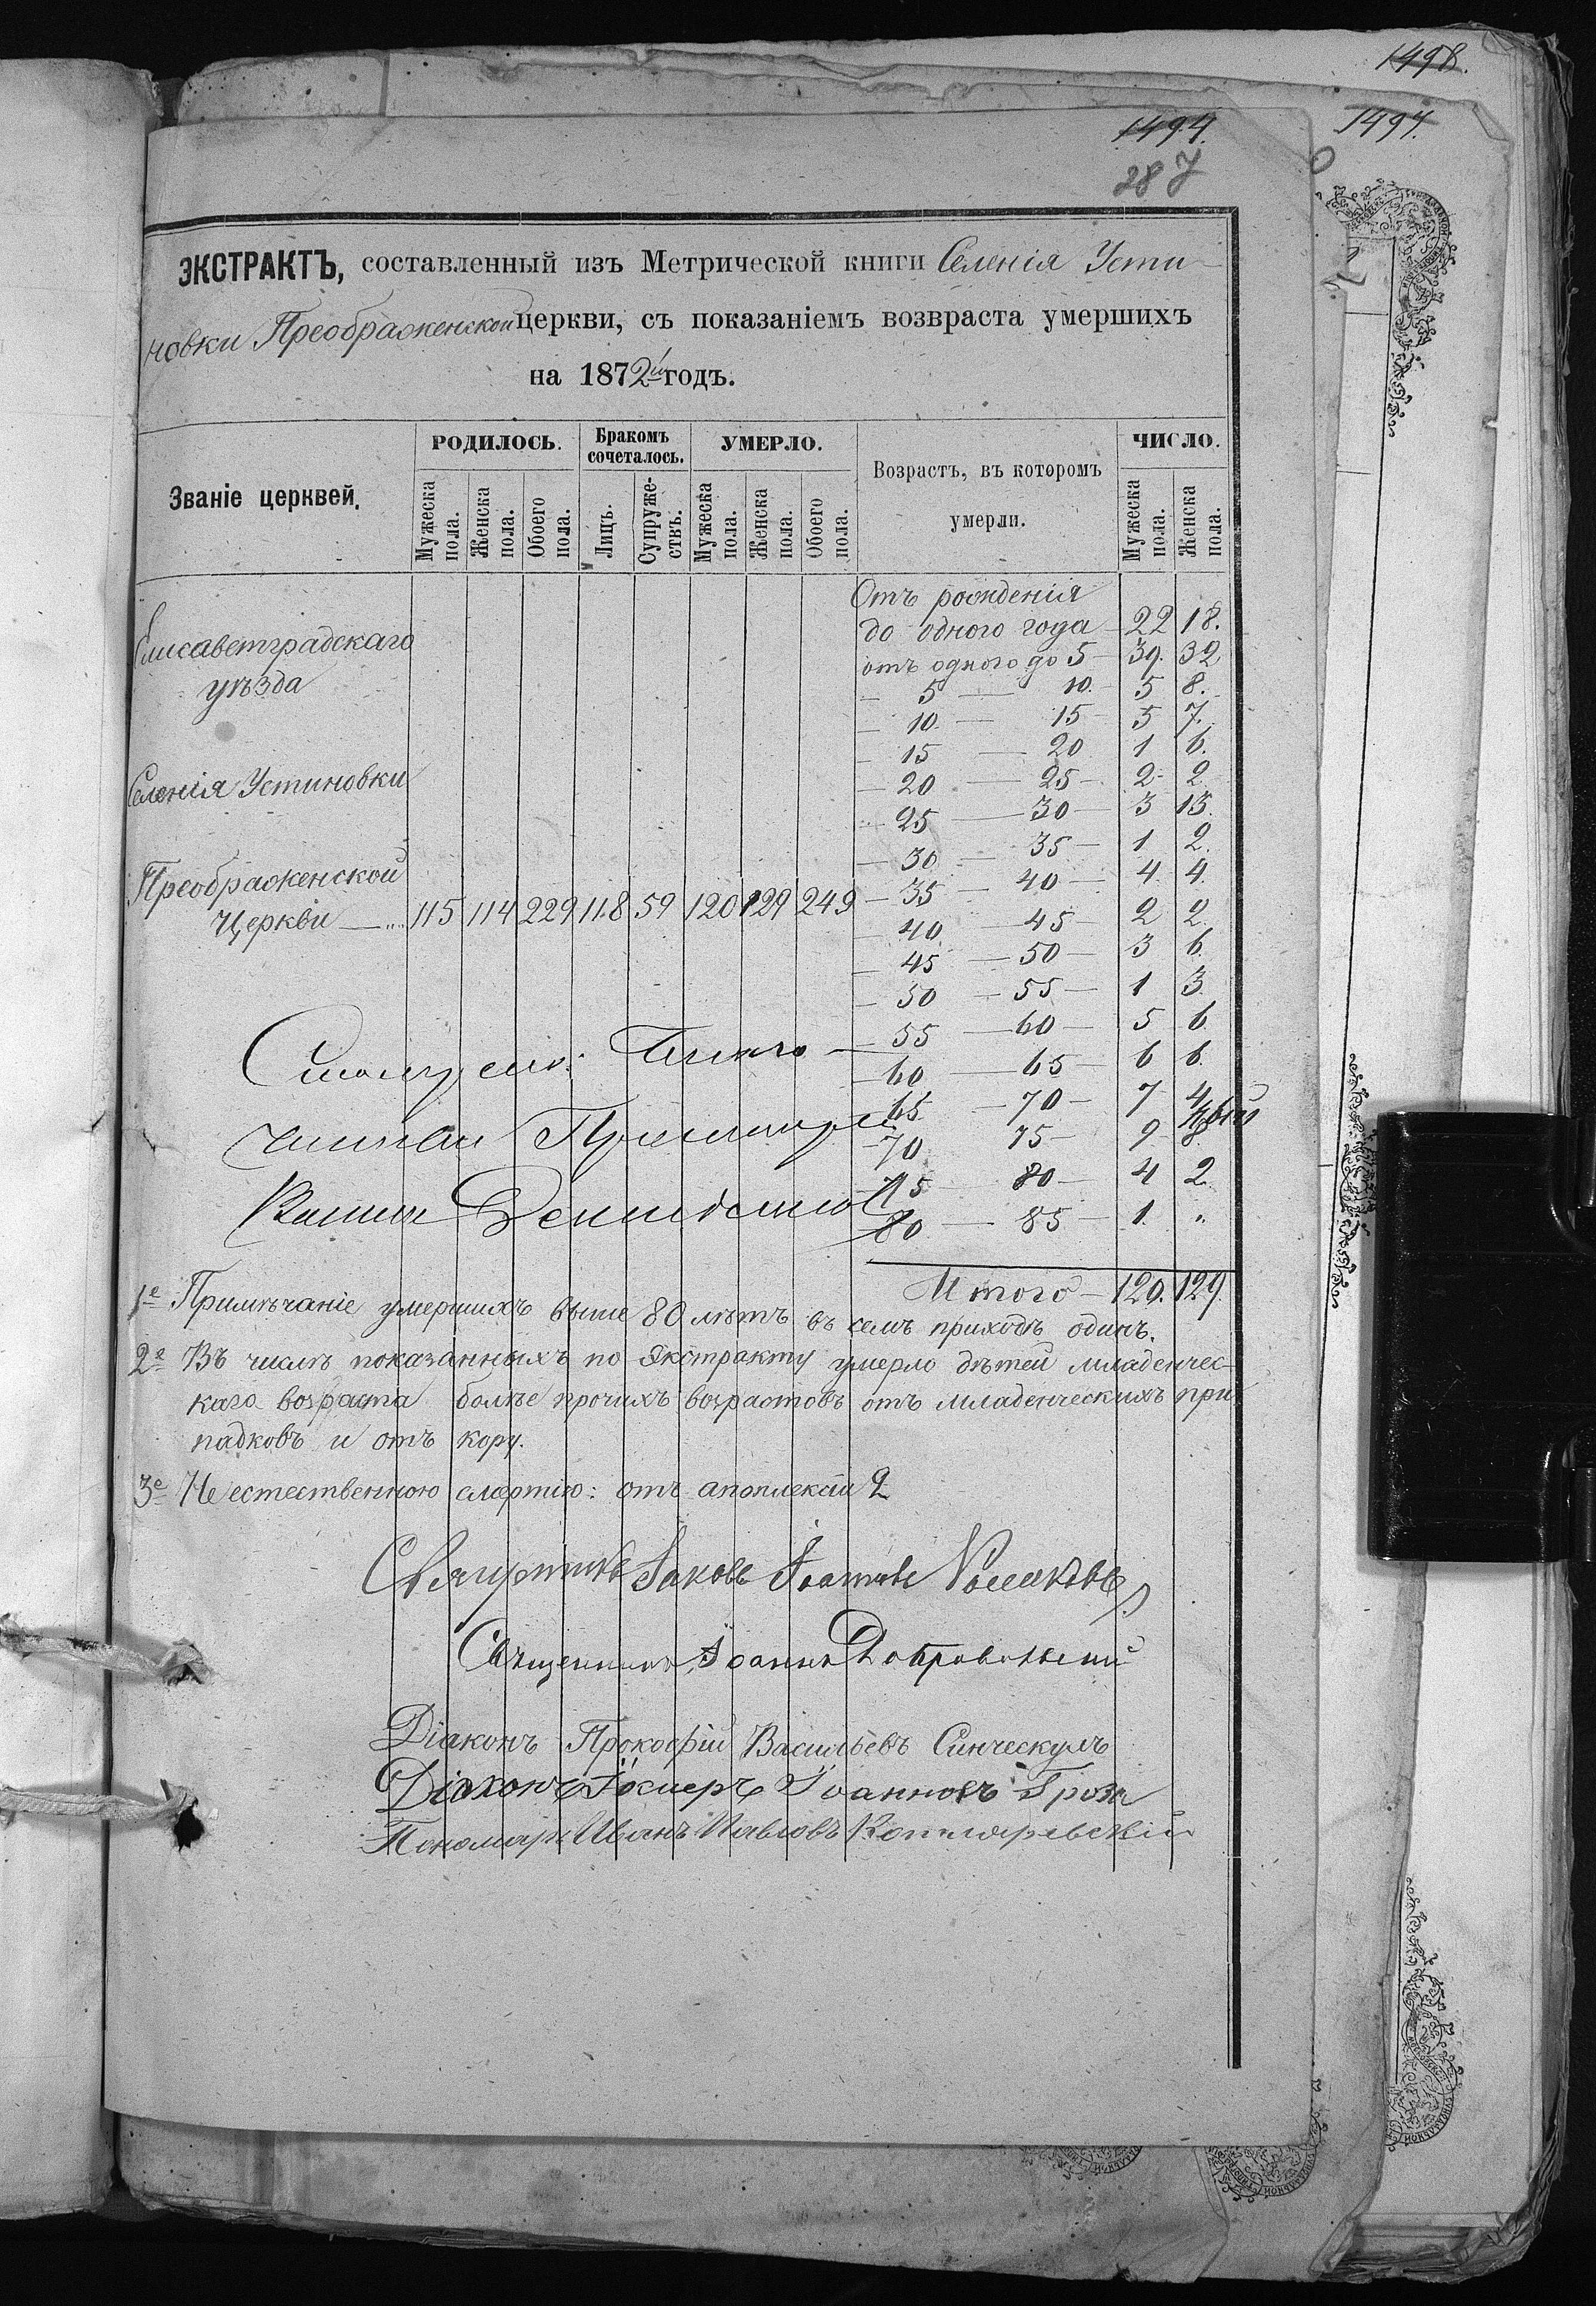 1498.
1494.
1497.
287
ЭКСТРАКТЪ, составленный изъ Метрической книги Селенія Усти-
новки Преображенской церкви, съ показаніемъ возвраста умершихъ
на 1872й годъ.
Званіе церквей.
РОДИЛОСЬ.
Бракомъ сочеталось.
УМЕРЛО.
Возрастъ, въ которомъ умерли.
ЧИСЛО.
Мужеска пола.
Женска пола.
Обоего пола.
Лицъ.
Супружествъ.
Мужеска пола.
Женска пола.
Обоего пола.
Мужеска пола.
Женска пола.
Елисаветградскаго
уѣзда
Селенія Устиновки
Преображенской
Церкви — 115 114 229 118 59 120 129 249
Отъ рожденія
до одного года — 22 18.
отъ одного до 5 — 39. 32
— 5 — 10. — 5 8.
— 10 — 15 — 5 7.
— 15 — 20 1 6.
— 20 — 25 — 2 2
— 25 — 30 — 3 13.
— 30 — 35 — 1 2.
— 35 — 40 — 4 4.
— 40 — 45 — 2 2.
— 45 — 50 — 3 6.
— 50 — 55 — 1 3.
— 55 — 60 — 5 6.
— 60 — 65 — 6 6.
— 65 — 70 — 7 4
— 70 75 — 9 8
— 75 80 — 4 2.
80 — 85 — 1. "
Итого — 120. 129.
1е Примѣчаніе умершихъ выше 80 лѣтъ въ семъ приходѣ одинъ.
2е Въ числѣ показанныхъ по Экстракту умерло дѣтей младенчес-
каго возраста болѣе прочихъ возрастовъ отъ младенческихъ при-
падковъ и отъ кору.
3е Не естественною смертію: отъ апоплексіи 2
Священникъ Іаковъ Іоанновъ
Священникъ Іоаннъ Добровольскій
Діаконъ Прокофій Васильевъ
Діаконъ Іоанновъ Гроза
Пономарь Иванъ Павловъ Котляревскій